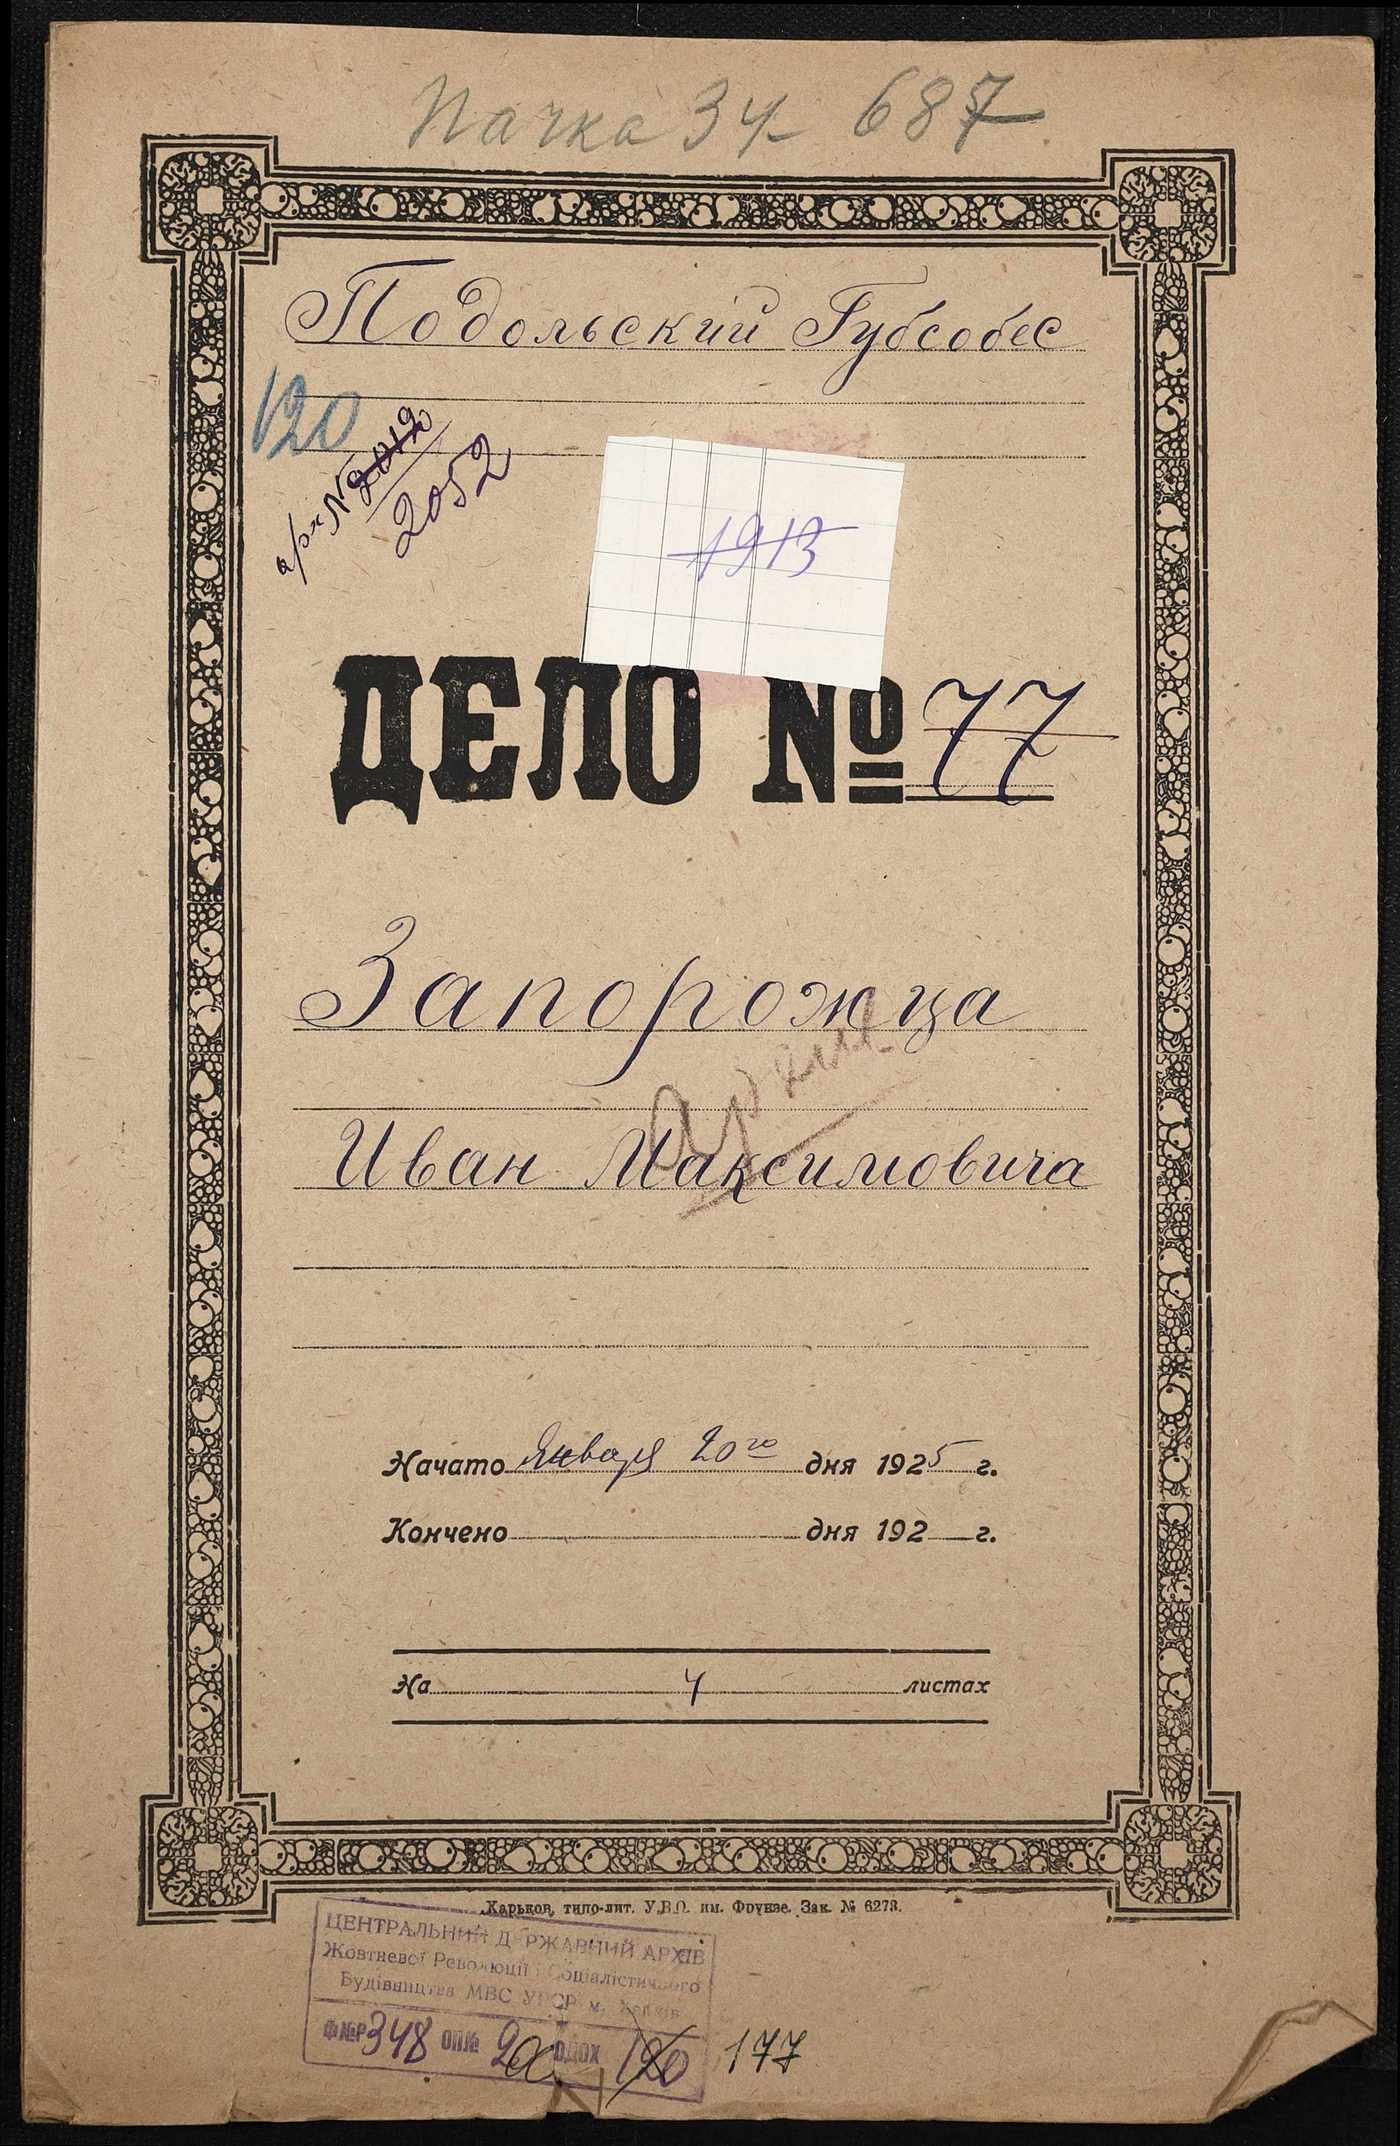 Пачка 34 687
Подольский Губсобес
120
арх №2012
2052
1913
ДЕЛО № 77
Запорожца
Архив
Иван Максимовича
Начато Января 20го дня 1925 г.
Кончено дня 192 г.
На 4 листах
Харьков, типо-лит. У.В.О. им. Фрунзе. Зак. № 6273.
ЦЕНТРАЛЬНИЙ ДЕРЖАВНИЙ АРХІВ
Жовтневої Революції і Соціалістичного
Будівництва МВС УРСР м. Харків
Ф№Р348 ОП№ 2а ОДОХ 120 177